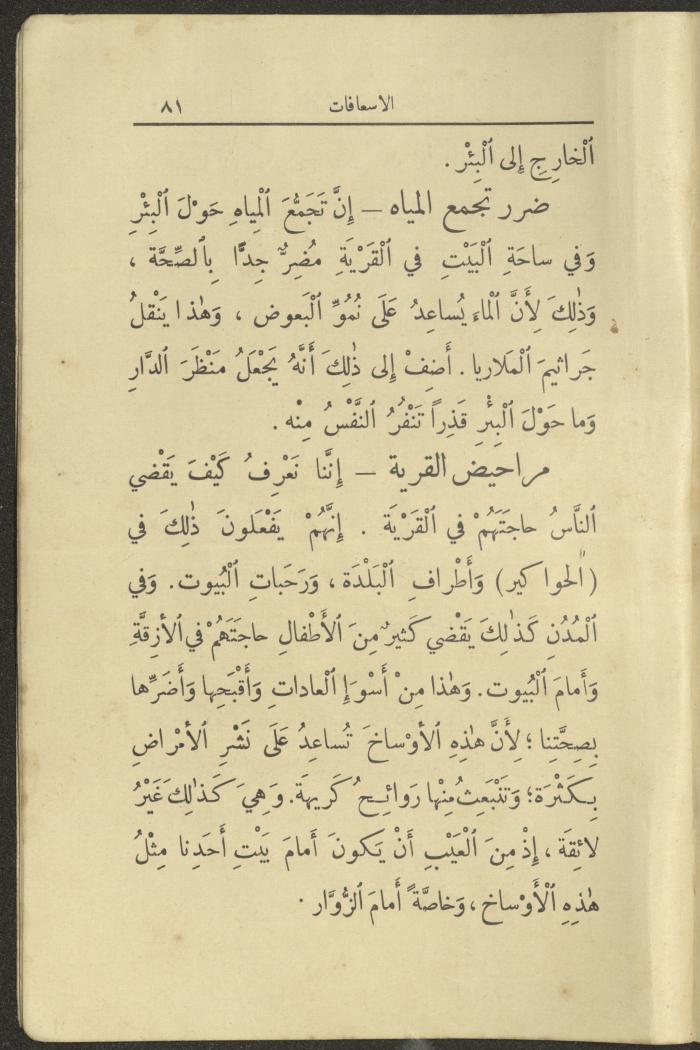 الاسعافات ٨١
ٱلْخارِجِ إِلى ٱلْبِئْر .
ضرر تجمع المياه – إِنَّ تَجَمُّعَ ٱلْمِياهِ حَوْلَ ٱلْبِئْرِ
وَفي ساحَةِ ٱلْبَيْتِ في ٱلْقَرْيَةِ مُضِرٌّ جِدًّا بِٱلصِّحَّة ،
وَذٰلِكَ لِأَنَّ ٱلْماءَ يُساعِدُ عَلَى نُمُوِّ ٱلْبَعوض ، وَهٰذا يَنْقلُ
جَراثيمَ ٱلْمَلاريا . أَضِفْ إِلى ذٰلِكَ أَنَّهُ يَجْعَلُ مَنْظَرَ ٱلدَّارِ
وَما حَوْلَ ٱلْبِئْرِ قَذِراً تَنْفُرُ ٱلنَّفْسُ مِنْه .
مراحيض القرية – إِنَّنا نَعْرِفُ كَيْفَ يَقْضي
ٱلنَّاسُ حاجَتَهُمْ في ٱلْقَرْيَة . إِنَّهُمْ يَفْعَلونَ ذٰلِكَ في
(ٱلحواكير) وَأَطْرافِ ٱلْبَلْدَة ، وَرَحَباتِ ٱلْبُيوت . وَفي
ٱلْمُدُنِ كَذٰلِكَ يَقْضي كَثيرٌ مِنَ ٱلأَطْفالِ حاجَتَهُمْ في ٱلأَزِقَّةِ
وَأَمامَ ٱلْبُيوت . وَهٰذا مِنْ أَسْوَإِ ٱلْعاداتِ وَأَقْبَحِها وَأَضَرِّها
بِصِحَّتِنا ؛ لِأَنَّ هٰذِهِ ٱلأَوْساخَ تُساعِدُ عَلَى نَشْرِ ٱلأَمْراضِ
بِكَثْرَة ؛ وَتَنْبَعِثُ مِنْها رَوائِحُ كَريهَة . وَهِيَ كَذٰلِكَ غَيْرُ
لائِقَة ، إِذْ مِنَ ٱلْعَيْبِ أَنْ يَكونَ أَمامَ بَيْتِ أَحَدِنا مِثْلُ
هٰذِهِ ٱلْأَوْساخ ، وَخاصَّةً أَمامَ ٱلزُّوَّار .